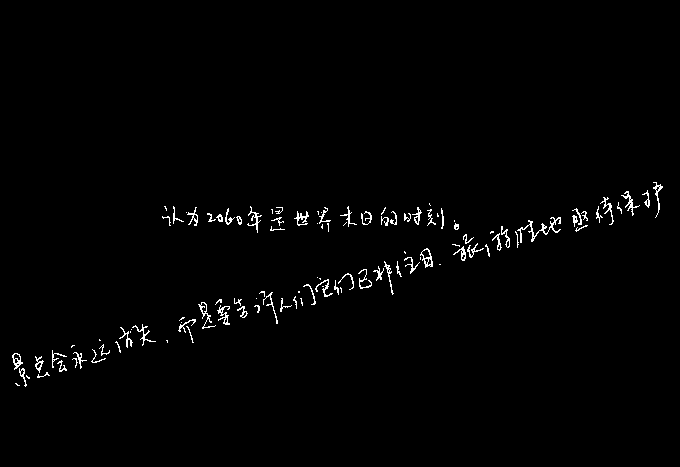 认为2060年是世界末日的时刻。
景点会永远消失，而是要告诉人们它们已非往日，旅游胜地亟待保护